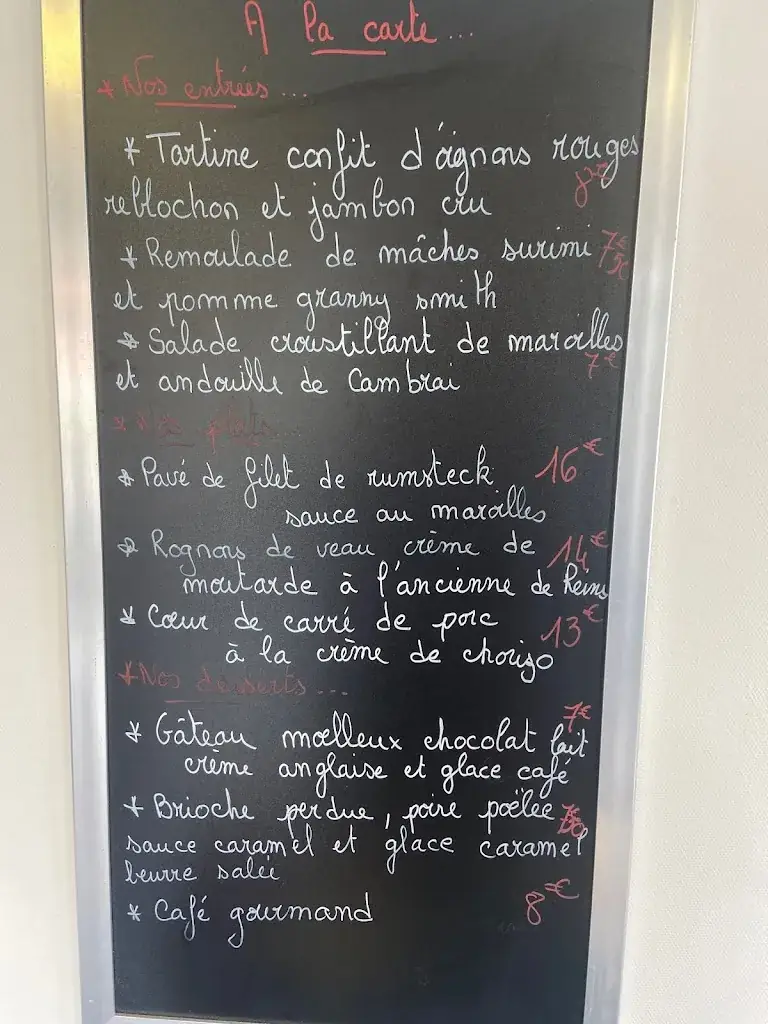 A la carte...
* Nos entrées....
* Tartine confit d'oignons rouges
reblochon et jambon cru
* Remoulade de mâches surimi 7€50
et pomme granny smith
* Salade croustillant de maroilles
et andouille de Cambrai 7€
* Nos plats...
* Pavé de filet de rumsteck 16€
sauce au maroilles
* Rognons de veau crème de 14€
moutarde à l'ancienne de Reims
* Cœur de carré de porc 13€
à la crème de chorizo
* Nos desserts...
* Gâteau moelleux chocolat lait 7€
crème anglaise et glace café
* Brioche perdue, poire poëlée
sauce caramel et glace caramel
beurre salée
* Café gourmand 8€